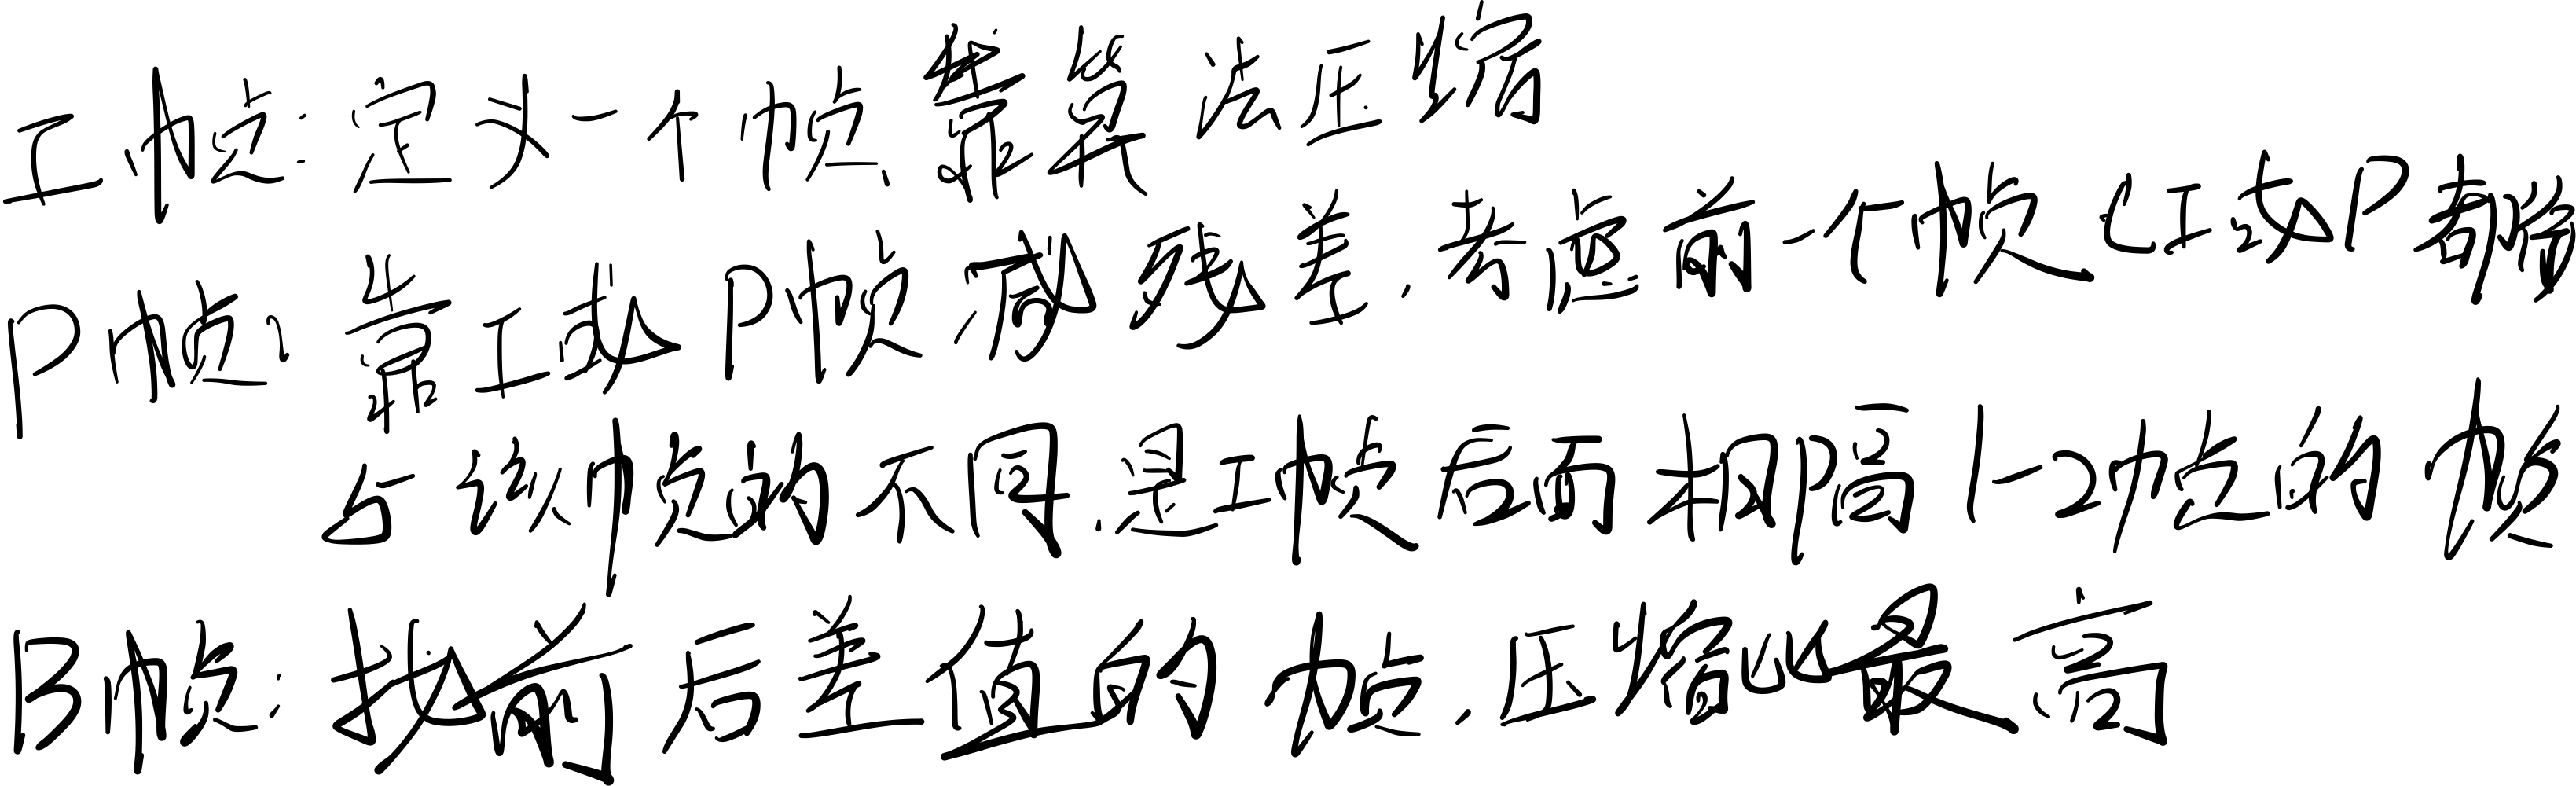 I帧:定义一个帧,靠算法压缩
P帧:靠I或P帧减残差,考虑前一个帧(I或P都
与该帧的不同.是I帧后面相隔1-2帧的帧
B帧:找前后差值的帧.压缩比最高